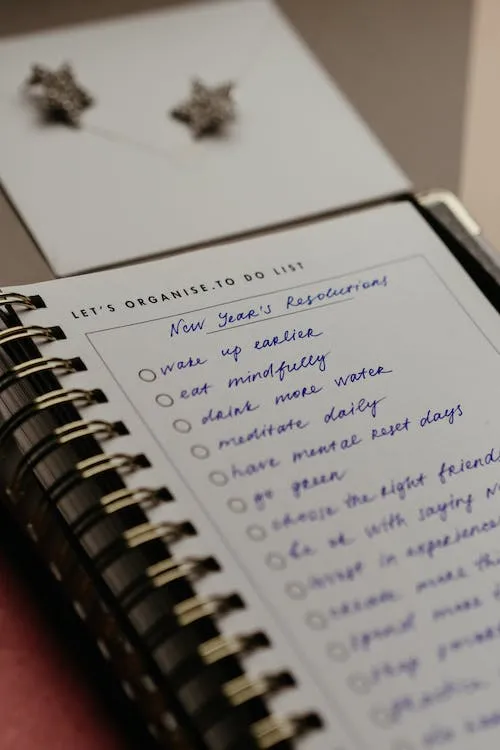 LET'S ORGANISE.TO DO LIST
New Year's Resolutions
wake up earlier
eat mindfully
drink more water
meditate daily
have mental reset days
go green
choose the right friends
be ok with saying N
invest in experience
create more th
spend more